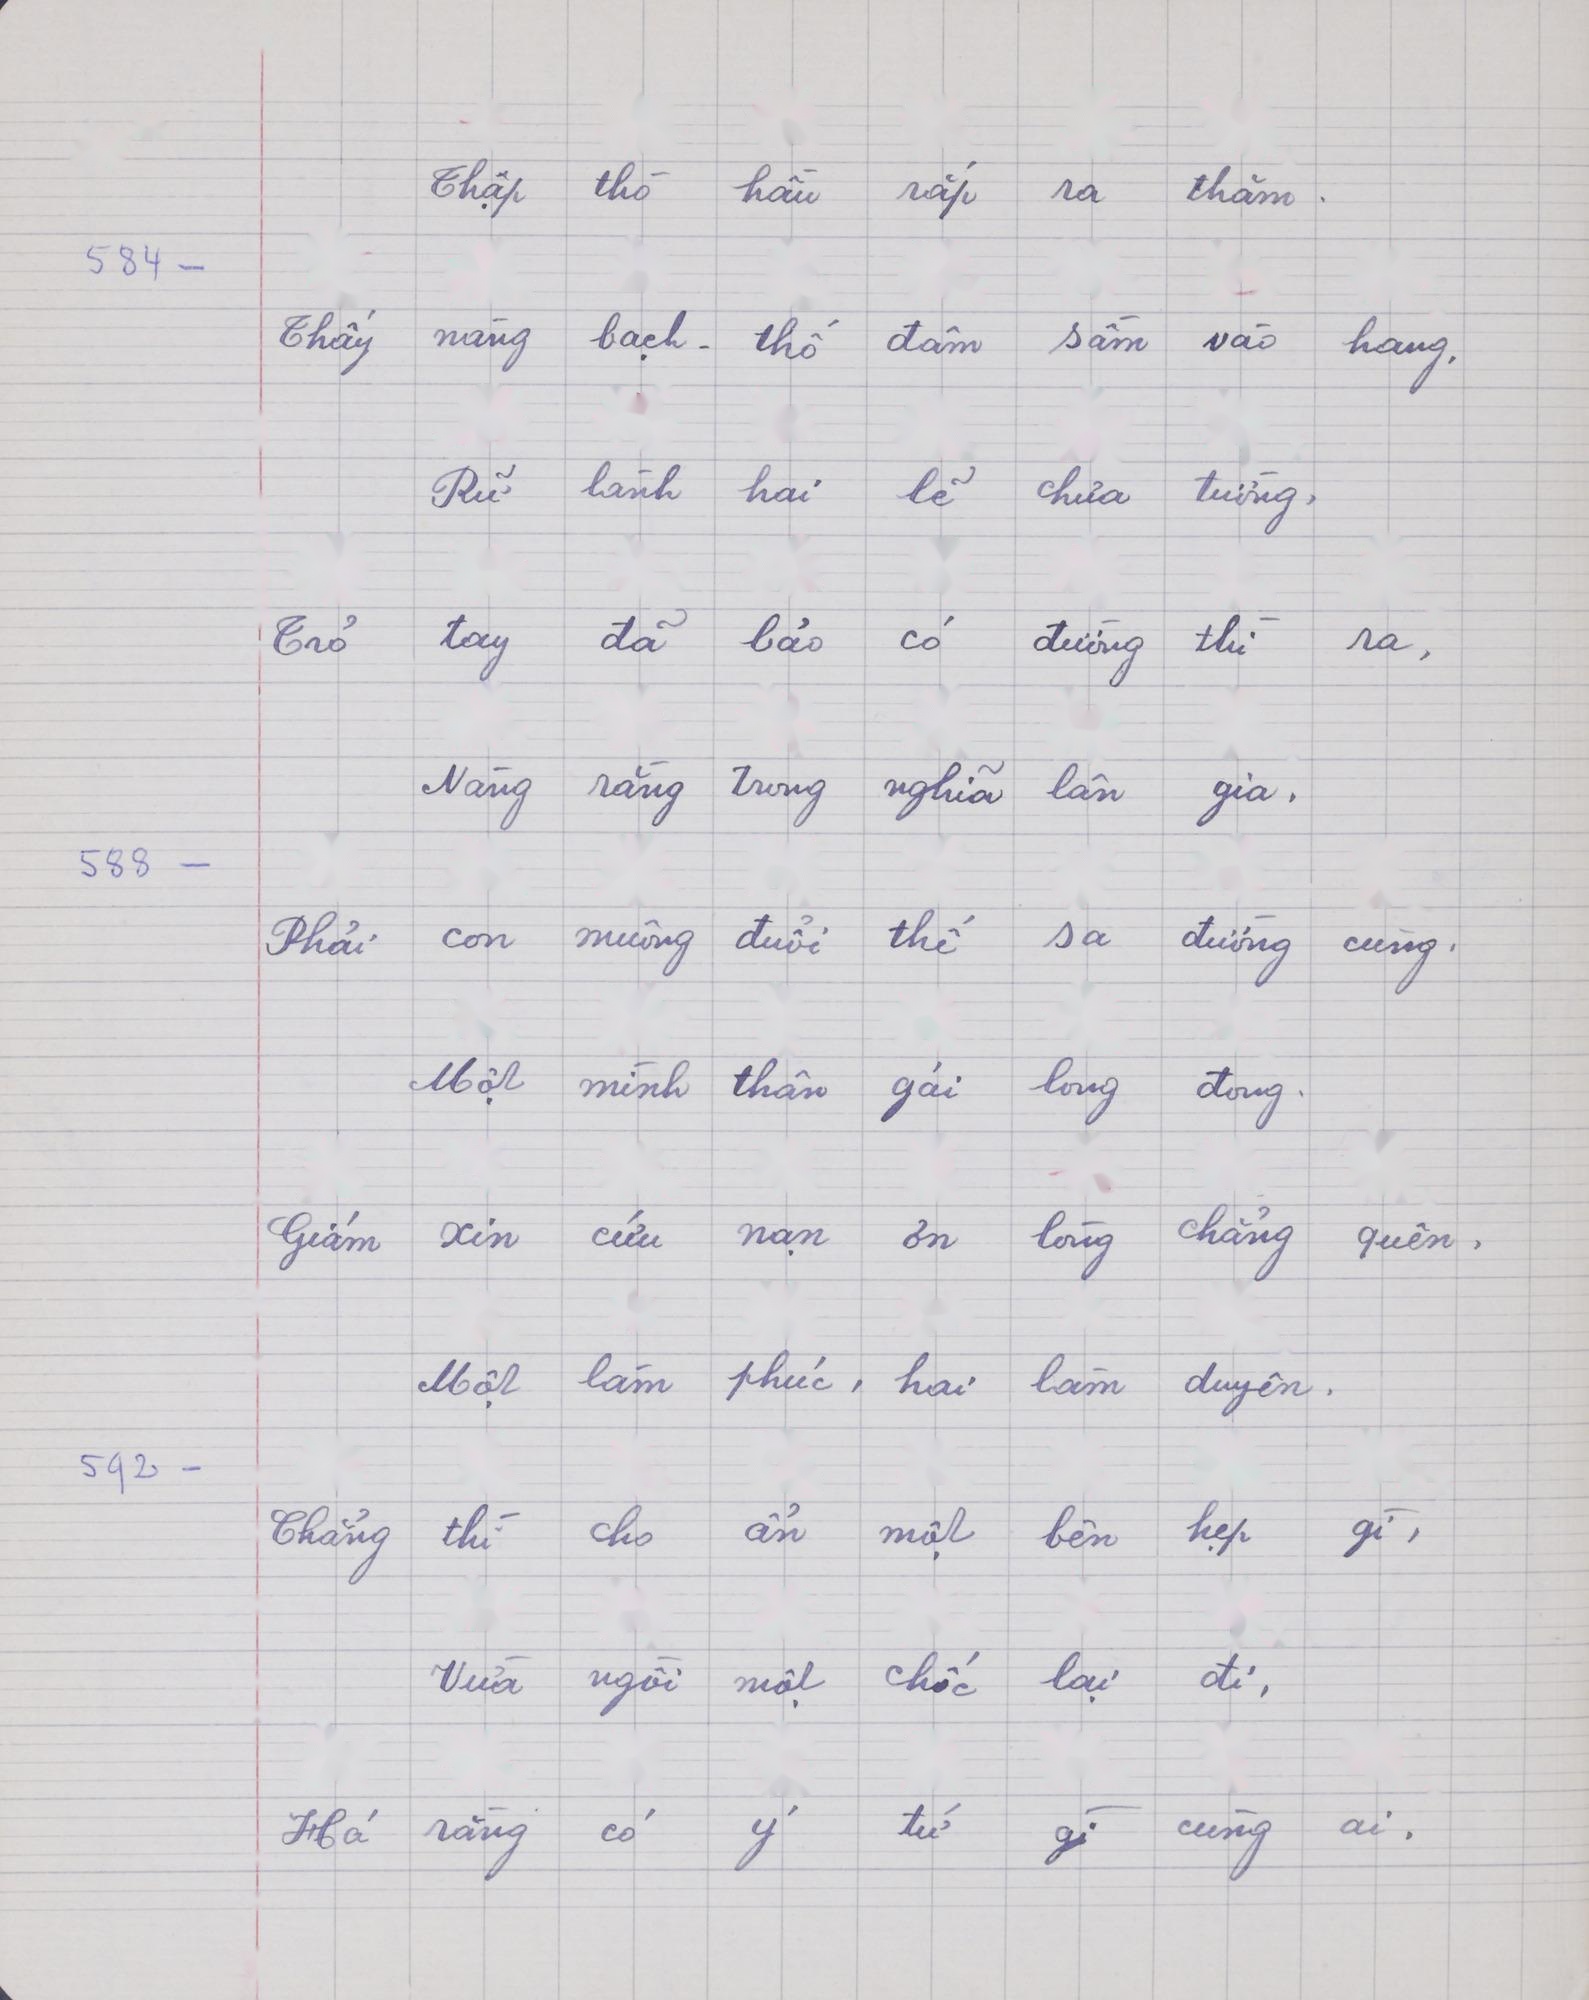 Thập thò hầu rắp ra thăm.
584 –
Thấy nàng bạch - thố đâm sầm vào hang,
Rữ lành hai lẽ chửa tường,
Trỏ tay đã bảo có đường thì ra,
Nàng rằng trong nghĩa lân gia,
588 –
Phải con muông đuổi thế sa đường cùng.
Một mình thân gái long đong.
Giám xin cứu nạn ơn lòng chẳng quên,
Một làm phúc, hai làm duyên.
592 –
Chẳng thì cho ẩn một bên hẹp gì,
Vừa ngồi một chốc lại đi,
Há rằng có ý tứ gì cùng ai.